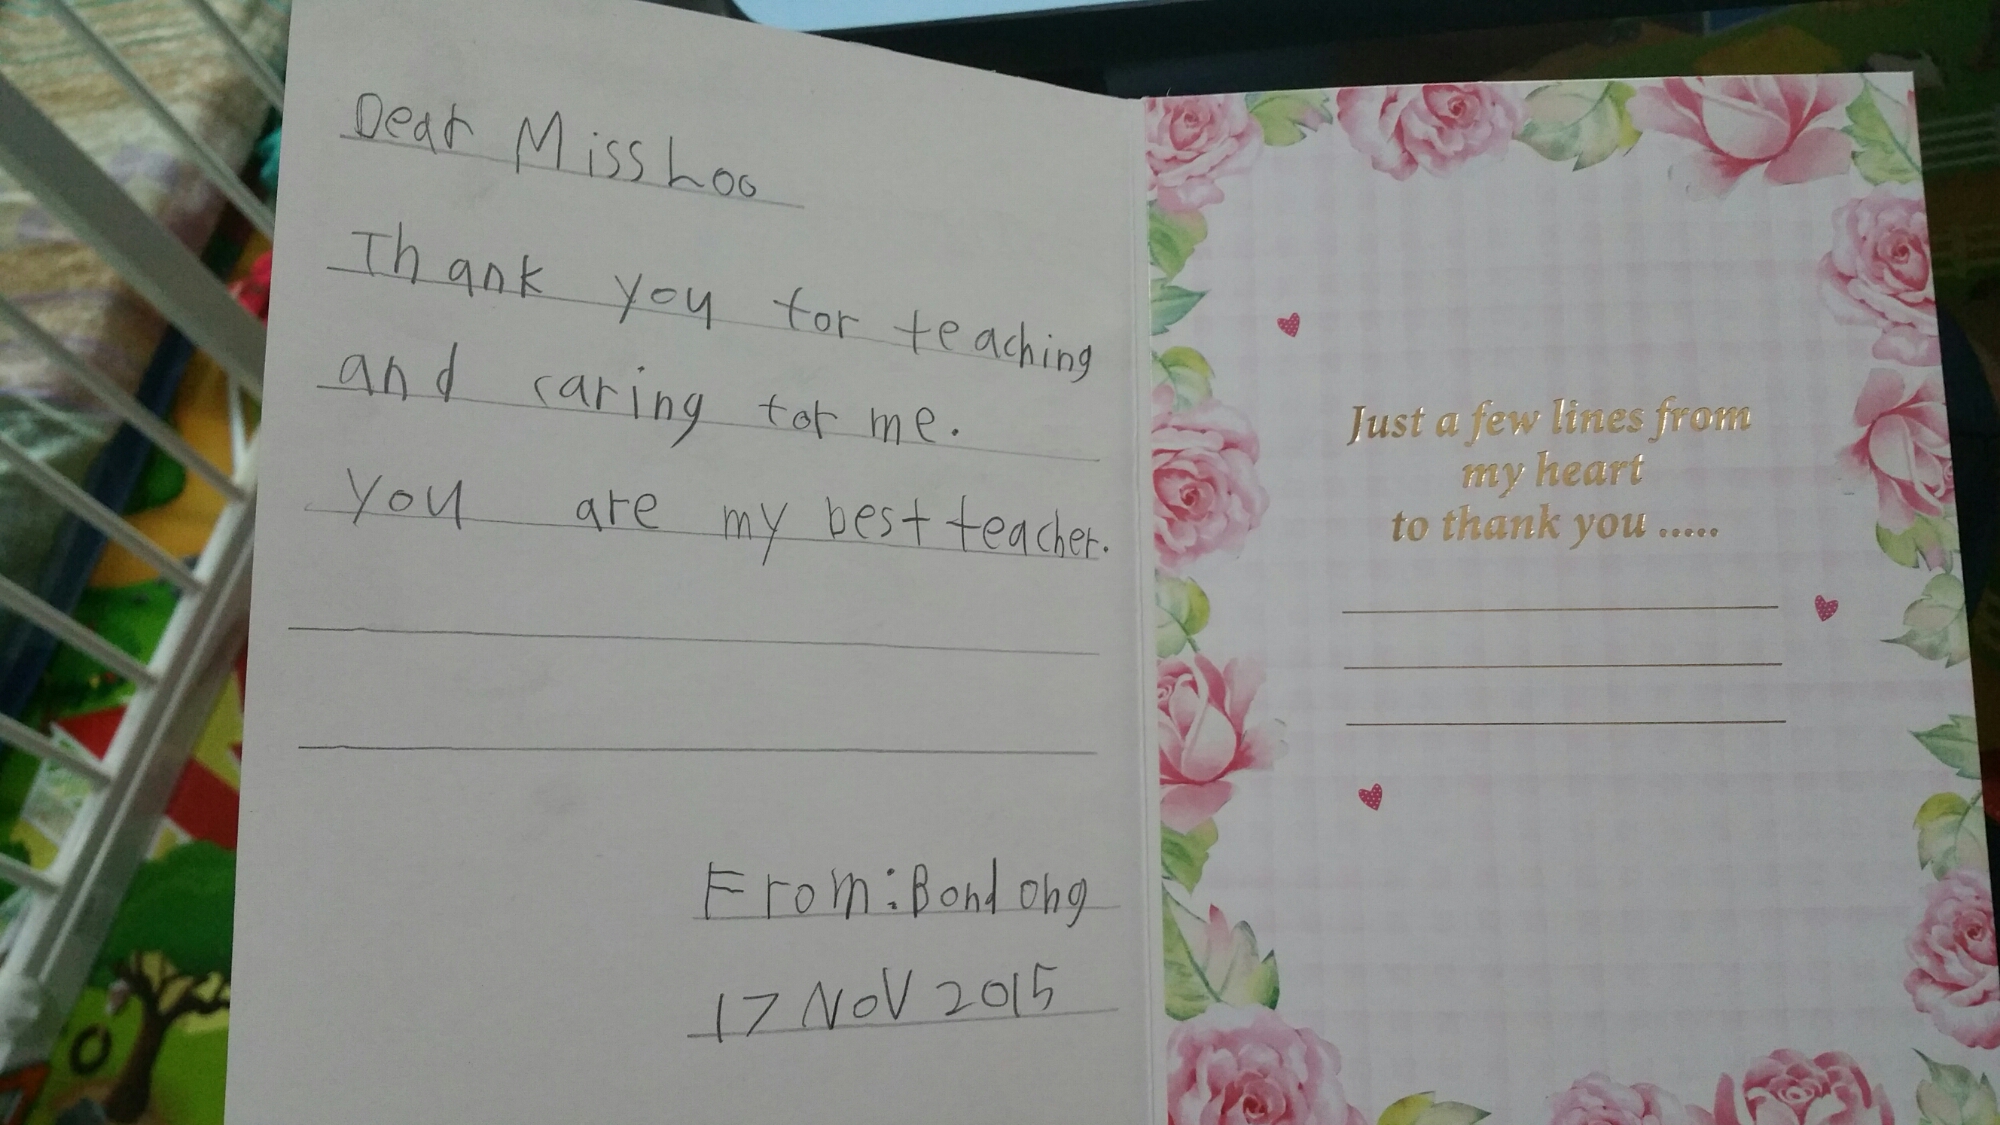 Dear Miss Loo
Thank you for teaching
and caring for me.
you are my best teacher.
From: Bond ong
17 NOV 2015
Just a few lines from
my heart
to thank you .....